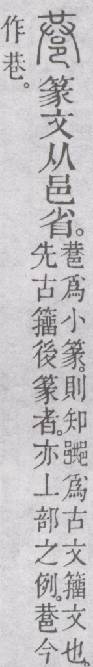 篆文从邑省。
爲小篆。則知爲古文籒文也。
先古籒後篆者。亦丄部之例。今
作巷。